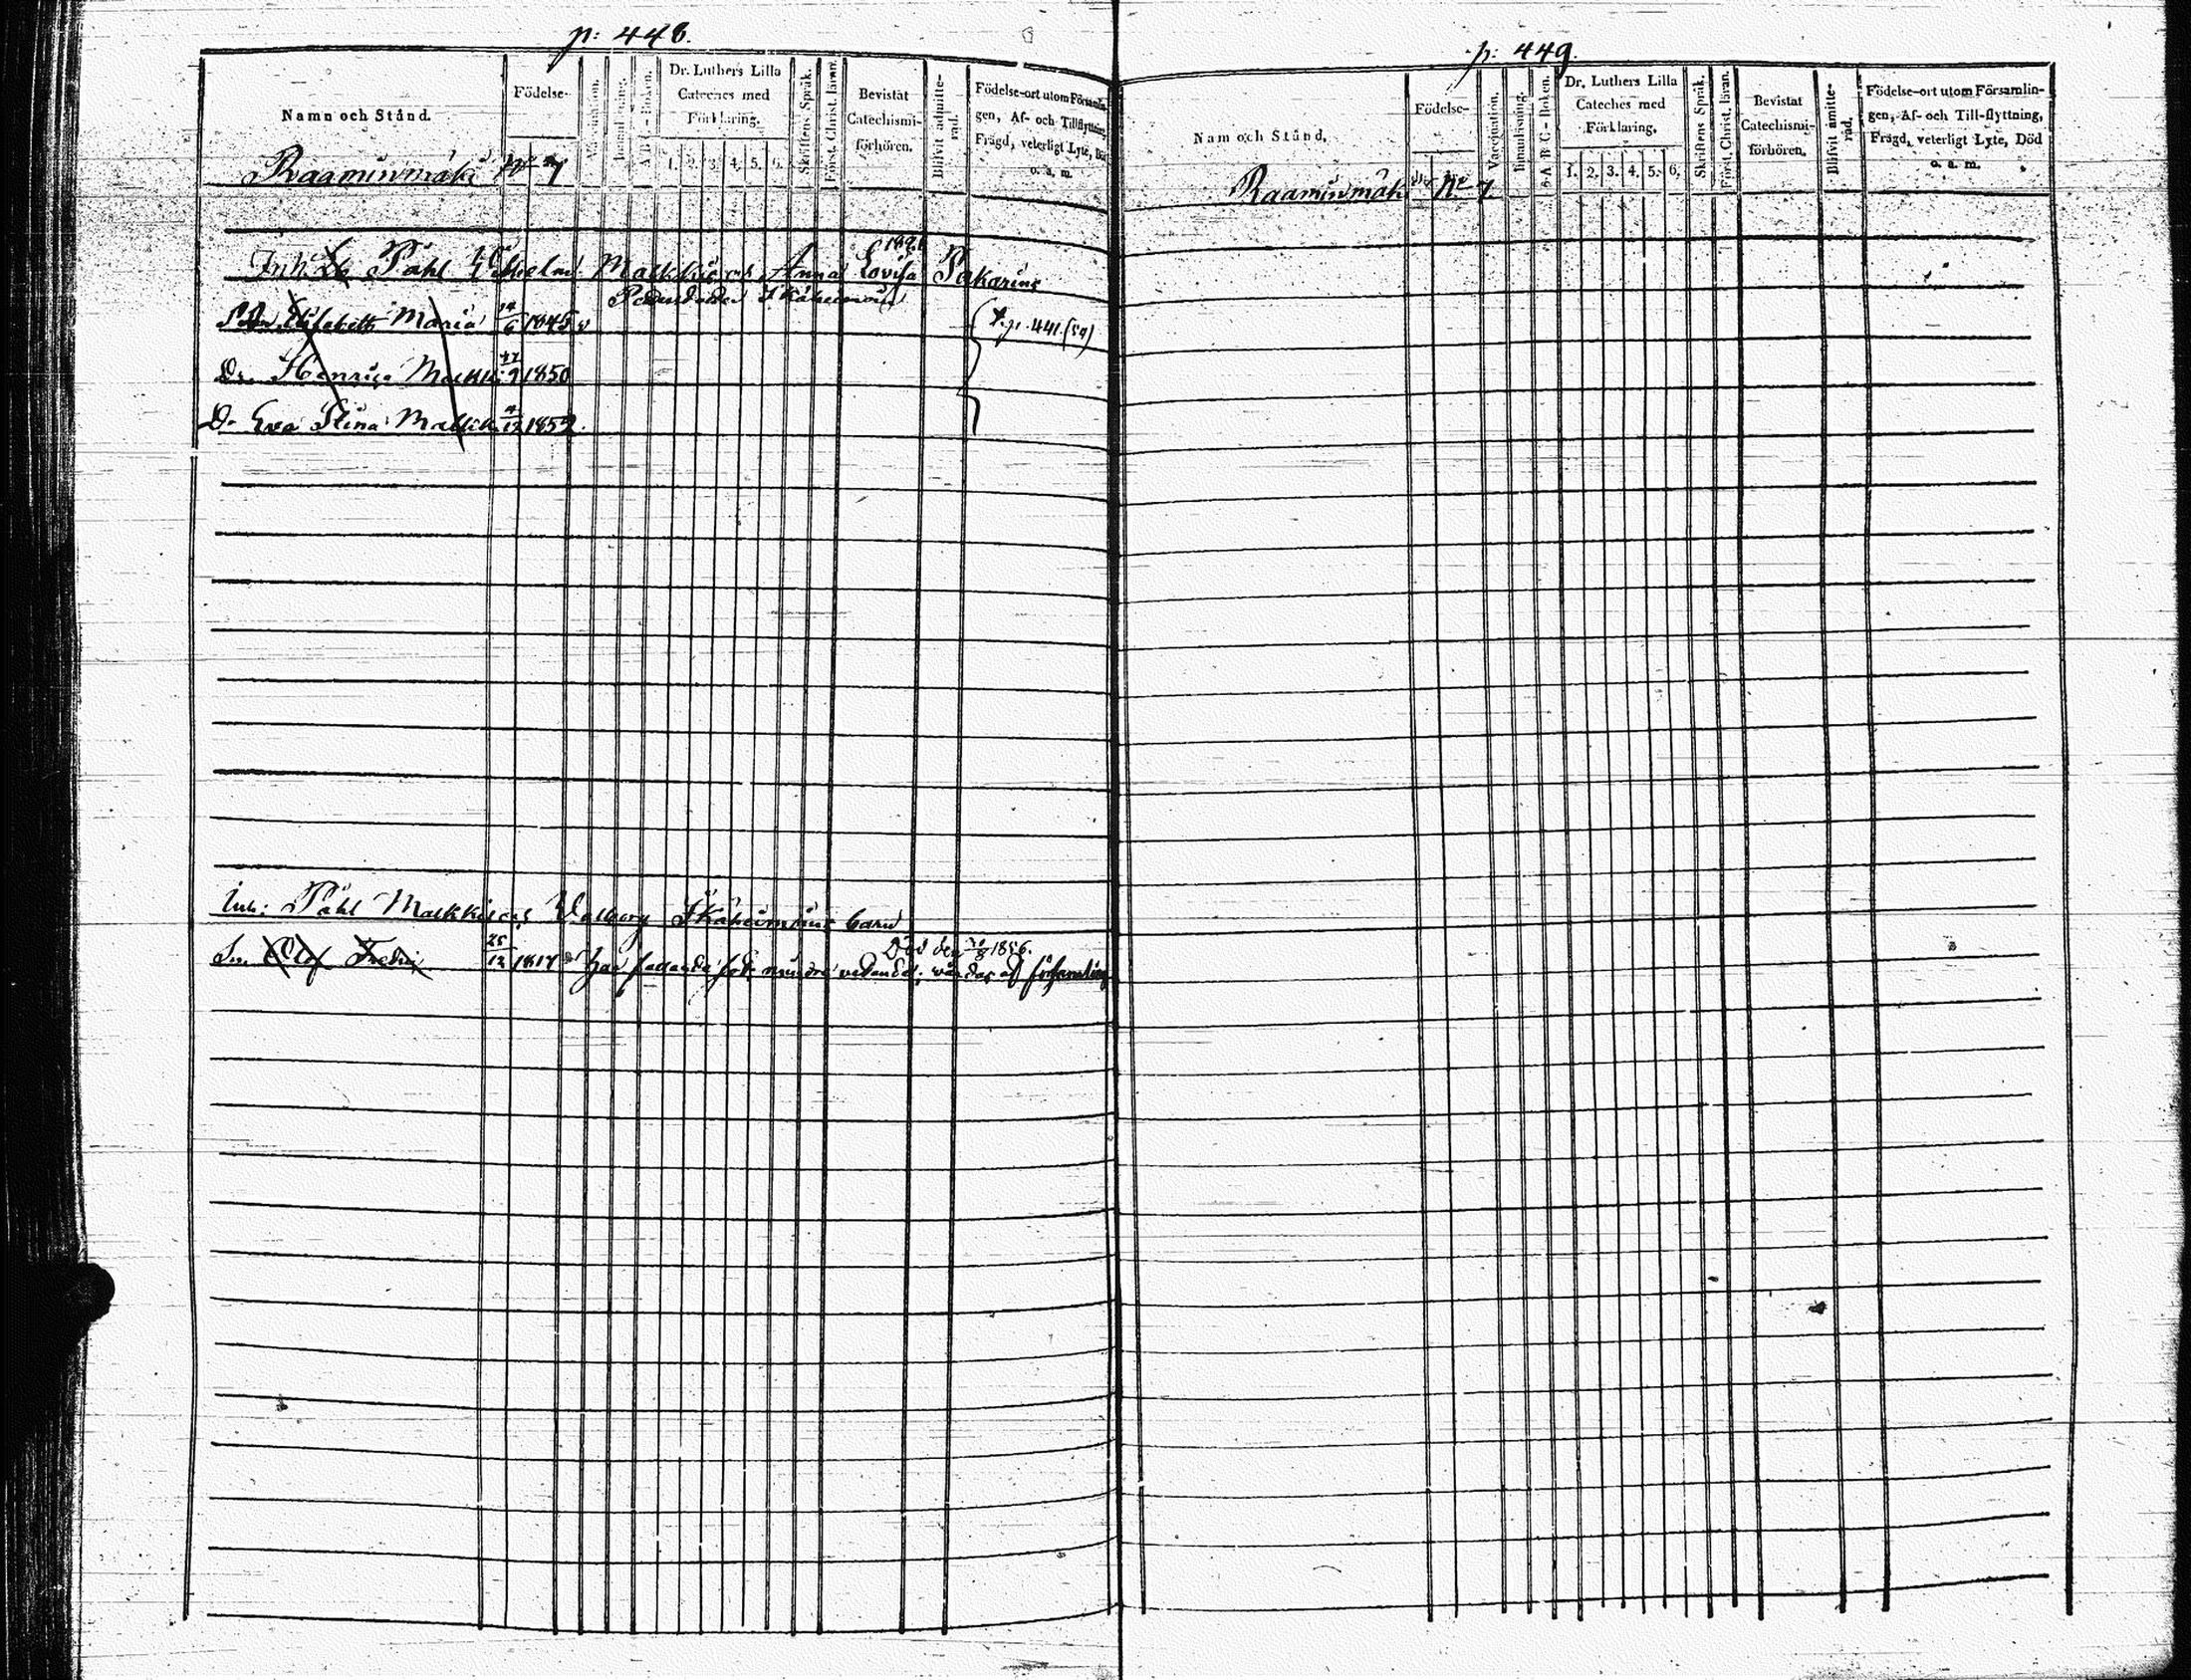 p: 448.
Namn och Stånd.
Födelse-
Vaccination.
Innanläsning.
A B C-Boken.
Dr. Luthers Lilla
Cateches med
Förklaring.
1. 2. 3. 4. 5. 6.
Skriftens Språk.
Först. Christ. läran.
Bevistat
Catechismi-
förhören.
Blifvit admitte-
rad.
Födelse-ort utom Församlin-
gen, Af- och Tillflyttning,
Frägd, veterligt Lyte, Död
o. a. m.
Raaminmäki No 7
Inh: Påhl Malkki och Anna Lovisa Pakarin
Elisabeth Maria 14/6 1845 v
Dr. Henrica Malkki 1850
Dr Eva Stina Malkki 4/12 1852.
p. 441. (54)
Inh: Påhl Malkki och Valborg Ikäheimoin barn
Sn. Olof Fredric 25/12 1817
Död den 1856.
har fallande sot, mindre vetande, vårdas af församling
p: 449.
Namn och Stånd.
Födelse-
Vaccination.
Innanläsning.
A B C-Boken.
Dr. Luthers Lilla
Cateches med
Förklaring.
1. 2. 3. 4. 5. 6.
Skriftens Språk.
Först. Christ. läran.
Bevistat
Catechismi-
förhören.
Blifvit admitte-
rad.
Födelse-ort utom Församlin-
gen, Af- och Till-flyttning,
Frägd, veterligt Lyte, Död
o. a. m.
Raaminmäki No 7.